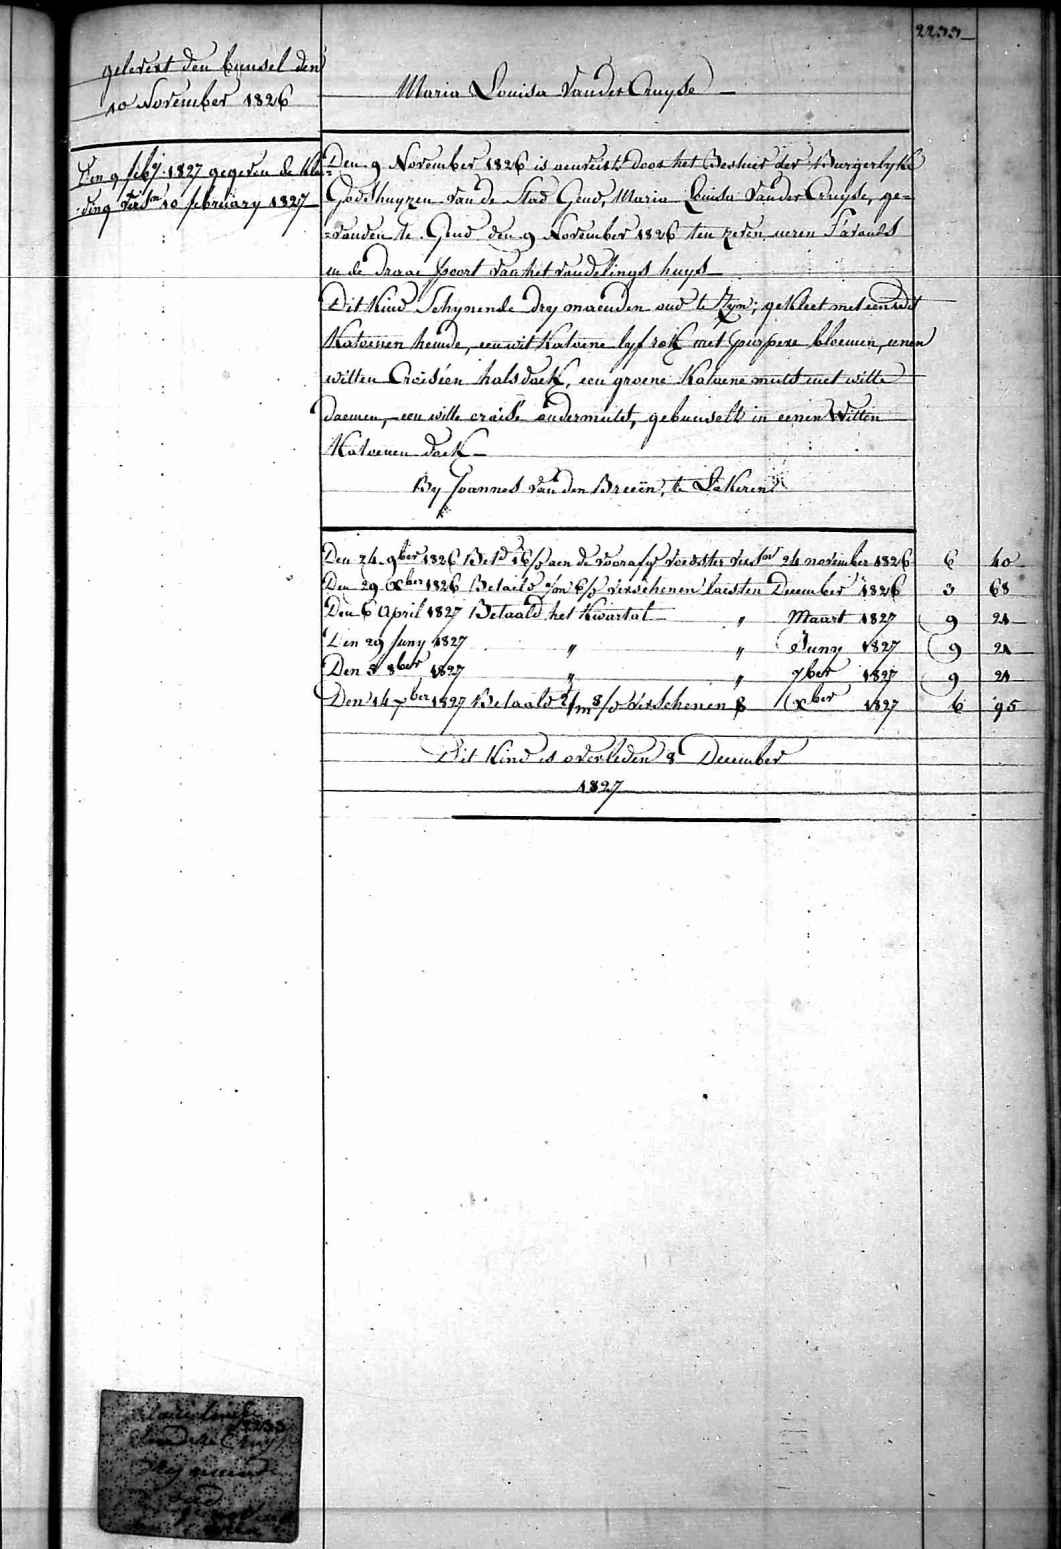 2233
gelevert den bunsel den
10 November 1826
Maria Louisa Vander Cruyse
Den 9 feb.y 1827 gegeven de Klee-
ding vers.en 10 february 1827
Den 9 November 1826 is aenveirt door het Bestuer der Burgerlyke
Godshuyzen van de Stad Gend, Maria Louisa Vander Cruyse, ge-
=vonden te Gend den 9 November 1826 ten zeven uren S'avonds
in de draae poort van het vondelings huys
Dit kind Schynende dry maenden oud te Zyn, gekleet met een wit
Katoenen hemde, een wit Katoene lyfrok met purpere bloemen, eenen
witten Croiséen halsdoek, een groene Katoene muts met witte
een witte croisé ondermuts, gebunselt in eenen Witten
Katoenen doek
By Joannes Van den Breeën, te Lokeren
Den 24 9ber 1826 Bet.d 16/ aen de voorafg voedster vers.en 24 november 1826 6 40
Den 29 Xber 1826 Betaeld verschenen laesten December 1826 3 68
Den 6 April 1827 Betaald het Kwartal " Maart 1827 9 21
Den 29 Juny 1827 " " Juny 1827 9 21
Den 5 8ber 1827 " " 7ber 1827 9 21
Den 14 Xber 1827 Betaald 2/m 8/d Verschenen 8 Xber 1827 6 95
Dit Kind is overleden 8 December
1827
2233
dry maend
oud